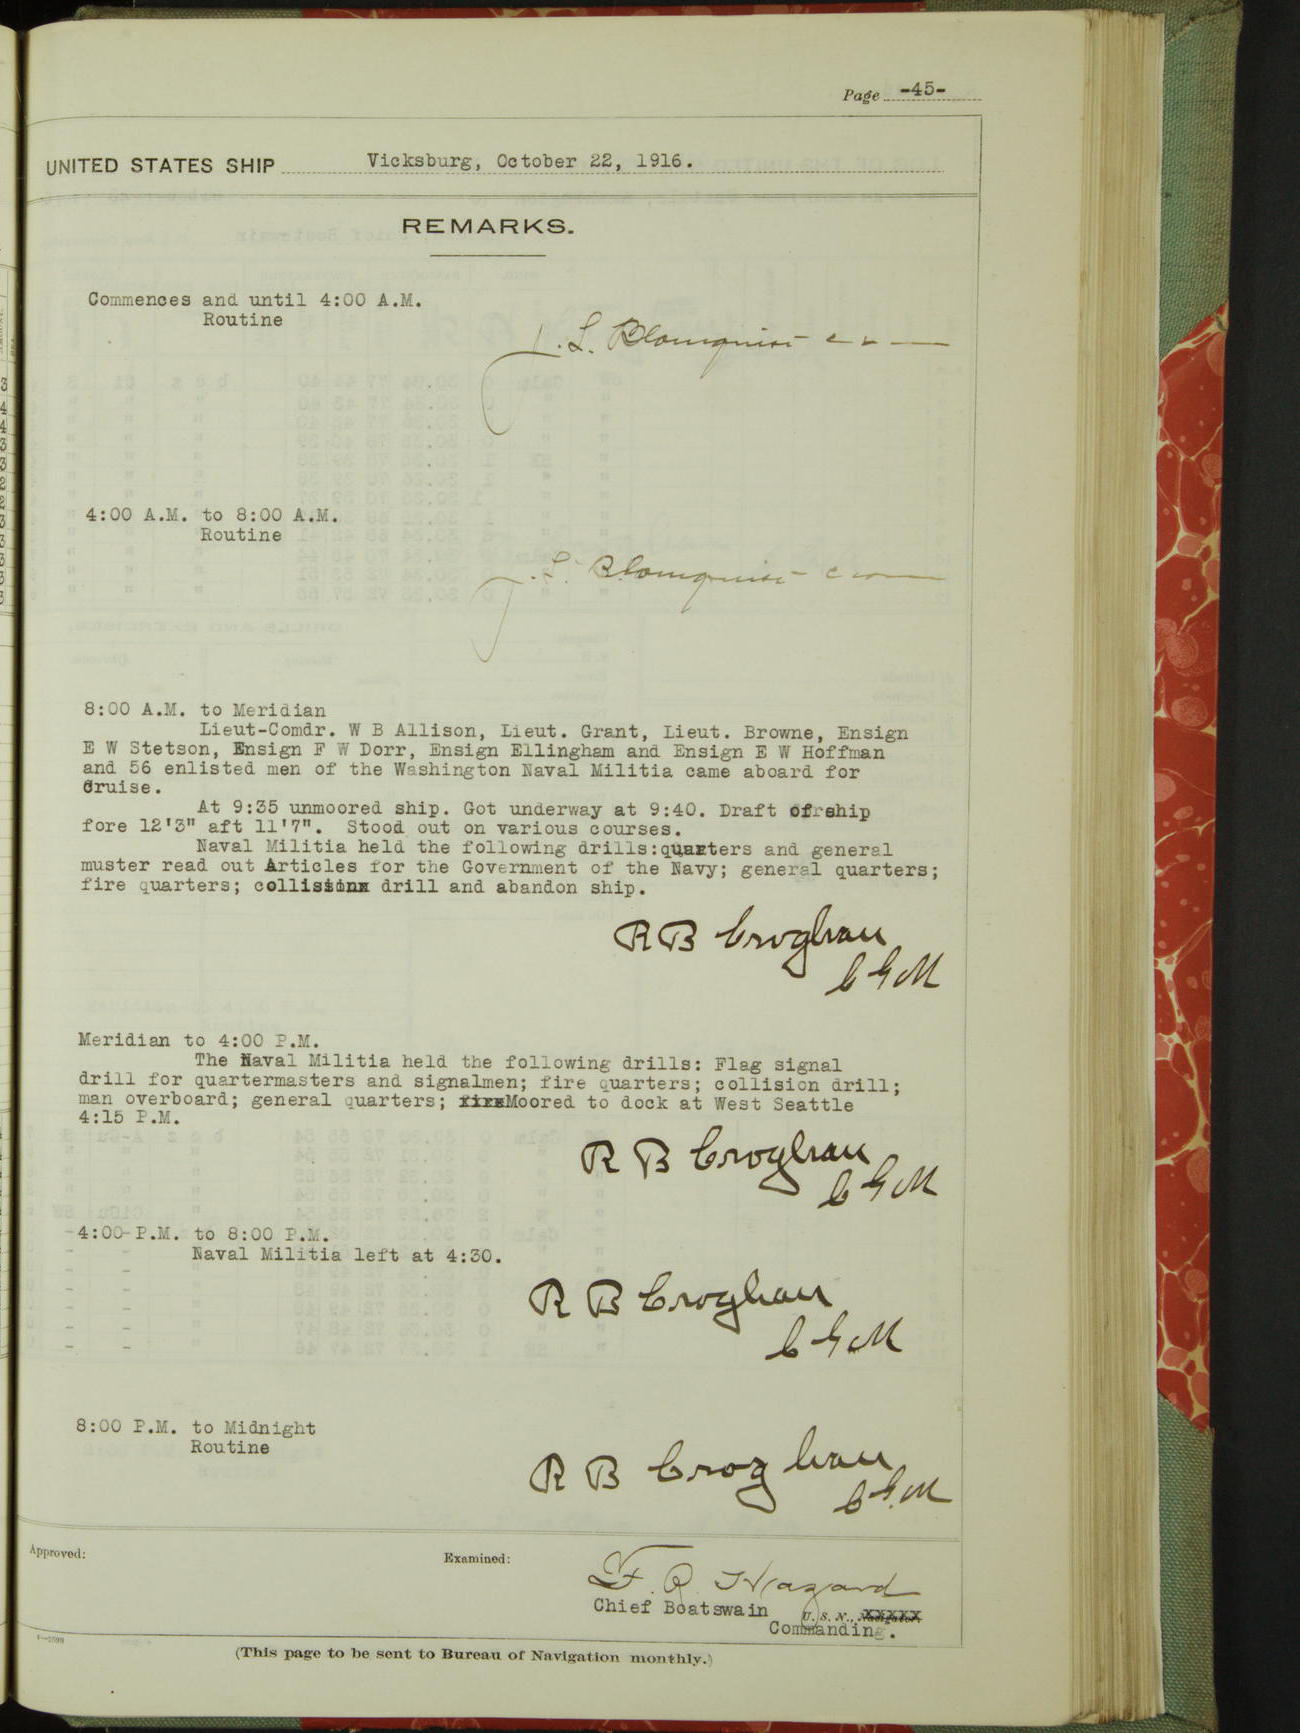 Page -45-
UNITED STATES SHIP Vicksburg, October 22, 1916.
REMARKS.
Commences and until 4:00 A.M.
Routine
J. L. Blomquist
4:00 A.M. to 8:00 A.M.
Routine
J. L. Blomquist
8:00 A.M. to Meridian
Lieut-Comdr. W B Allison, Lieut. Grant, Lieut. Browne, Ensign
E W Stetson, Ensign F W Dorr, Ensign Ellingham and Ensign E W Hoffman
and 56 enlisted men of the Washington Naval Militia came aboard for
Cruise.
At 9:35 unmoored ship. Got underway at 9:40. Draft of ship
fore 12'3" aft 11'7". Stood out on various courses.
Naval Militia held the following drills:quarters and general
muster read out Articles for the Government of the Navy; general quarters;
fire quarters; collision drill and abandon ship.
R B Croghan
C G M
Meridian to 4:00 P.M.
The Naval Militia held the following drills: Flag signal
drill for quartermasters and signalmen; fire quarters; collision drill;
man overboard; general quarters; Moored to dock at West Seattle
4:15 P.M.
R B Croghan
C G M
4:00 P.M. to 8:00 P.M.
Naval Militia left at 4:30.
R B Croghan
C G M
8:00 P.M. to Midnight
Routine
R B Croghan
C G M
Approved:
Examined:
F. R. Hazard
Chief Boatswain U. S. N.,
Commanding.
(This page to be sent to Bureau of Navigation monthly.)